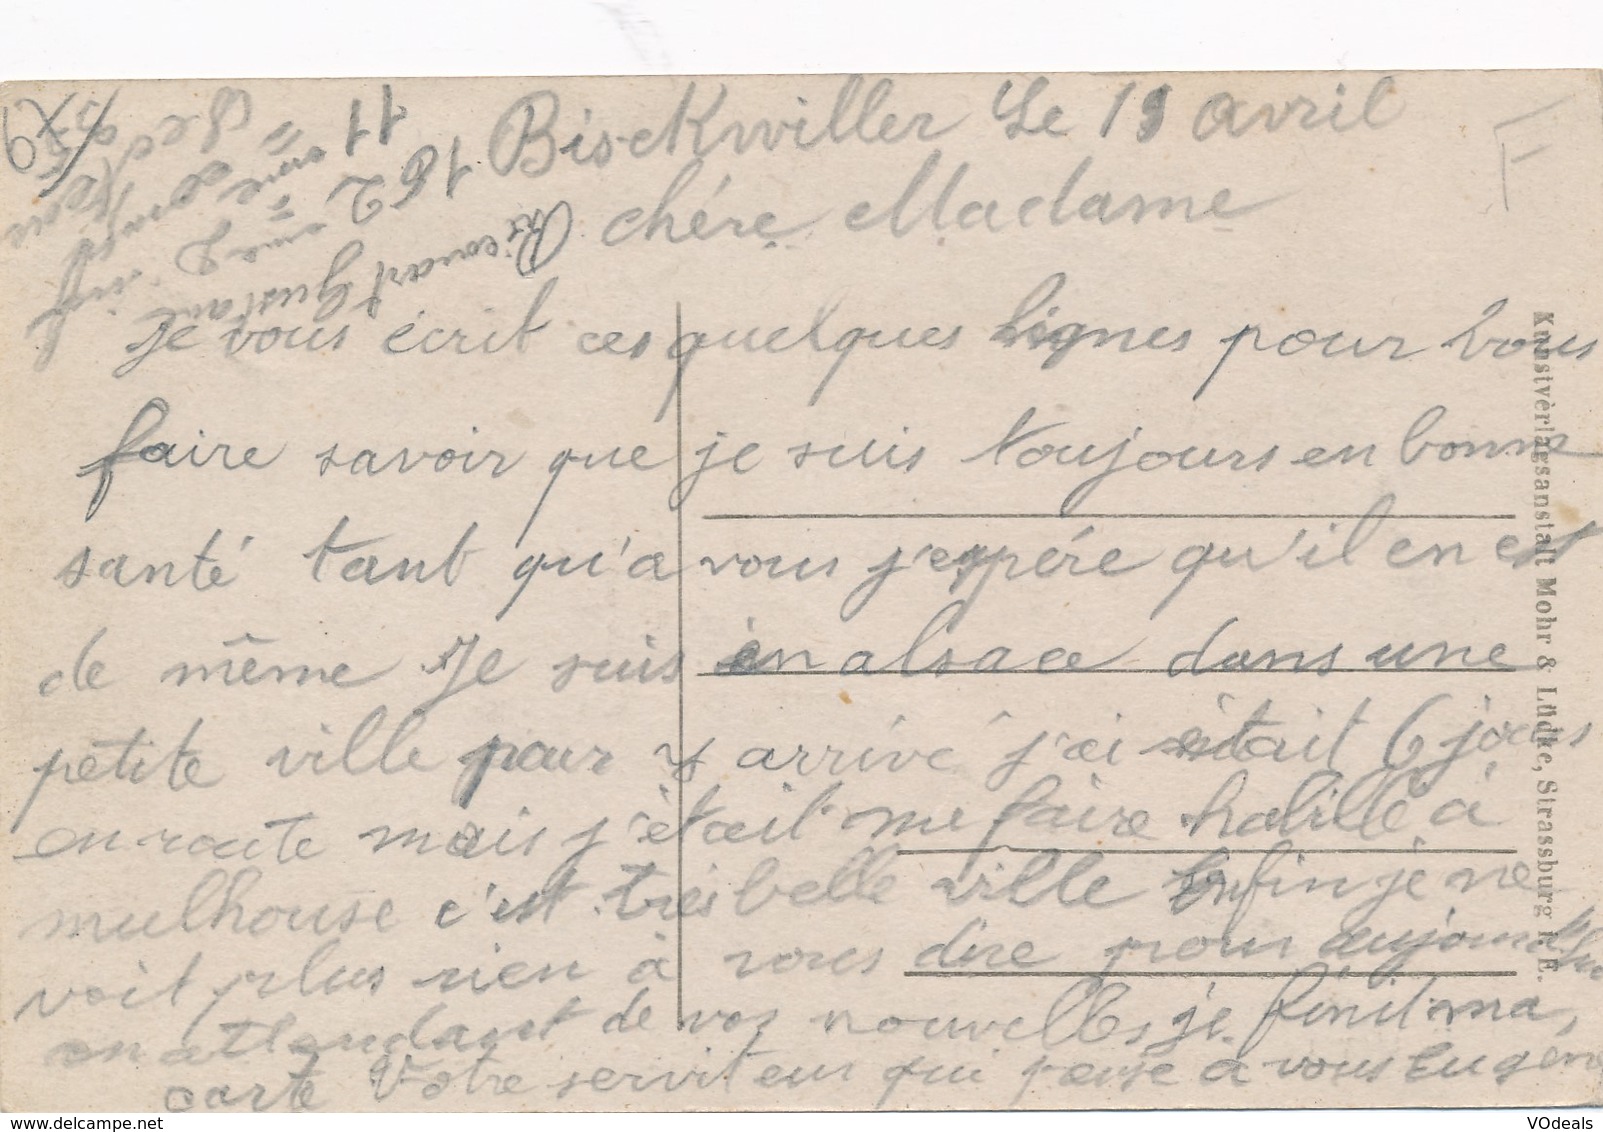 Bischwiller Le 19 avril
chére Madame
Je vous écrit ces quelques lignes pour vous
faire savoir que je suis toujours en bonne
santé tant qu'a vous j'espére qu'il en est
de même Je suis en alsace dans une
petite ville pour y arrivé j'ai était 6 jours
en route mais j'était me faire habillé à
mulhouse c'est très belle ville Enfin je ne
voit plus rien à vous dire pour aujourd'hui
en attendant de vos nouvelles je finit ma
carte Votre serviteur qui pense a vous Eugène
Ricouart Gustave
162 inf
11
F
Kunstverlagsanstalt Mohr & Lüdke, Strassburg i. E.
VOdeals